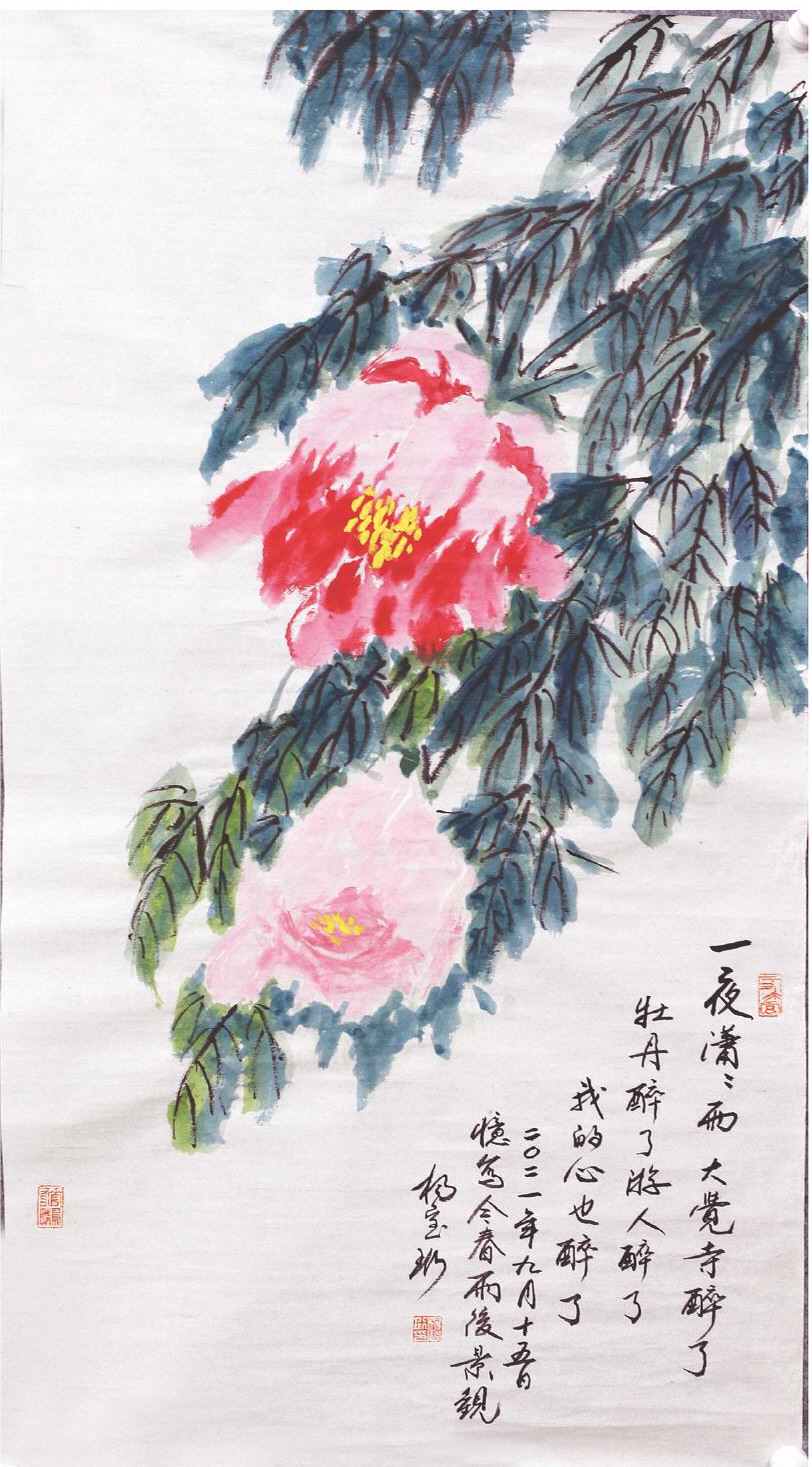 一夜潇〻雨 大覺寺醉了
牡丹醉了游人醉了
我的心也醉了
二〇二一年九月十五日
憶寫今春雨後景觀
杨宝